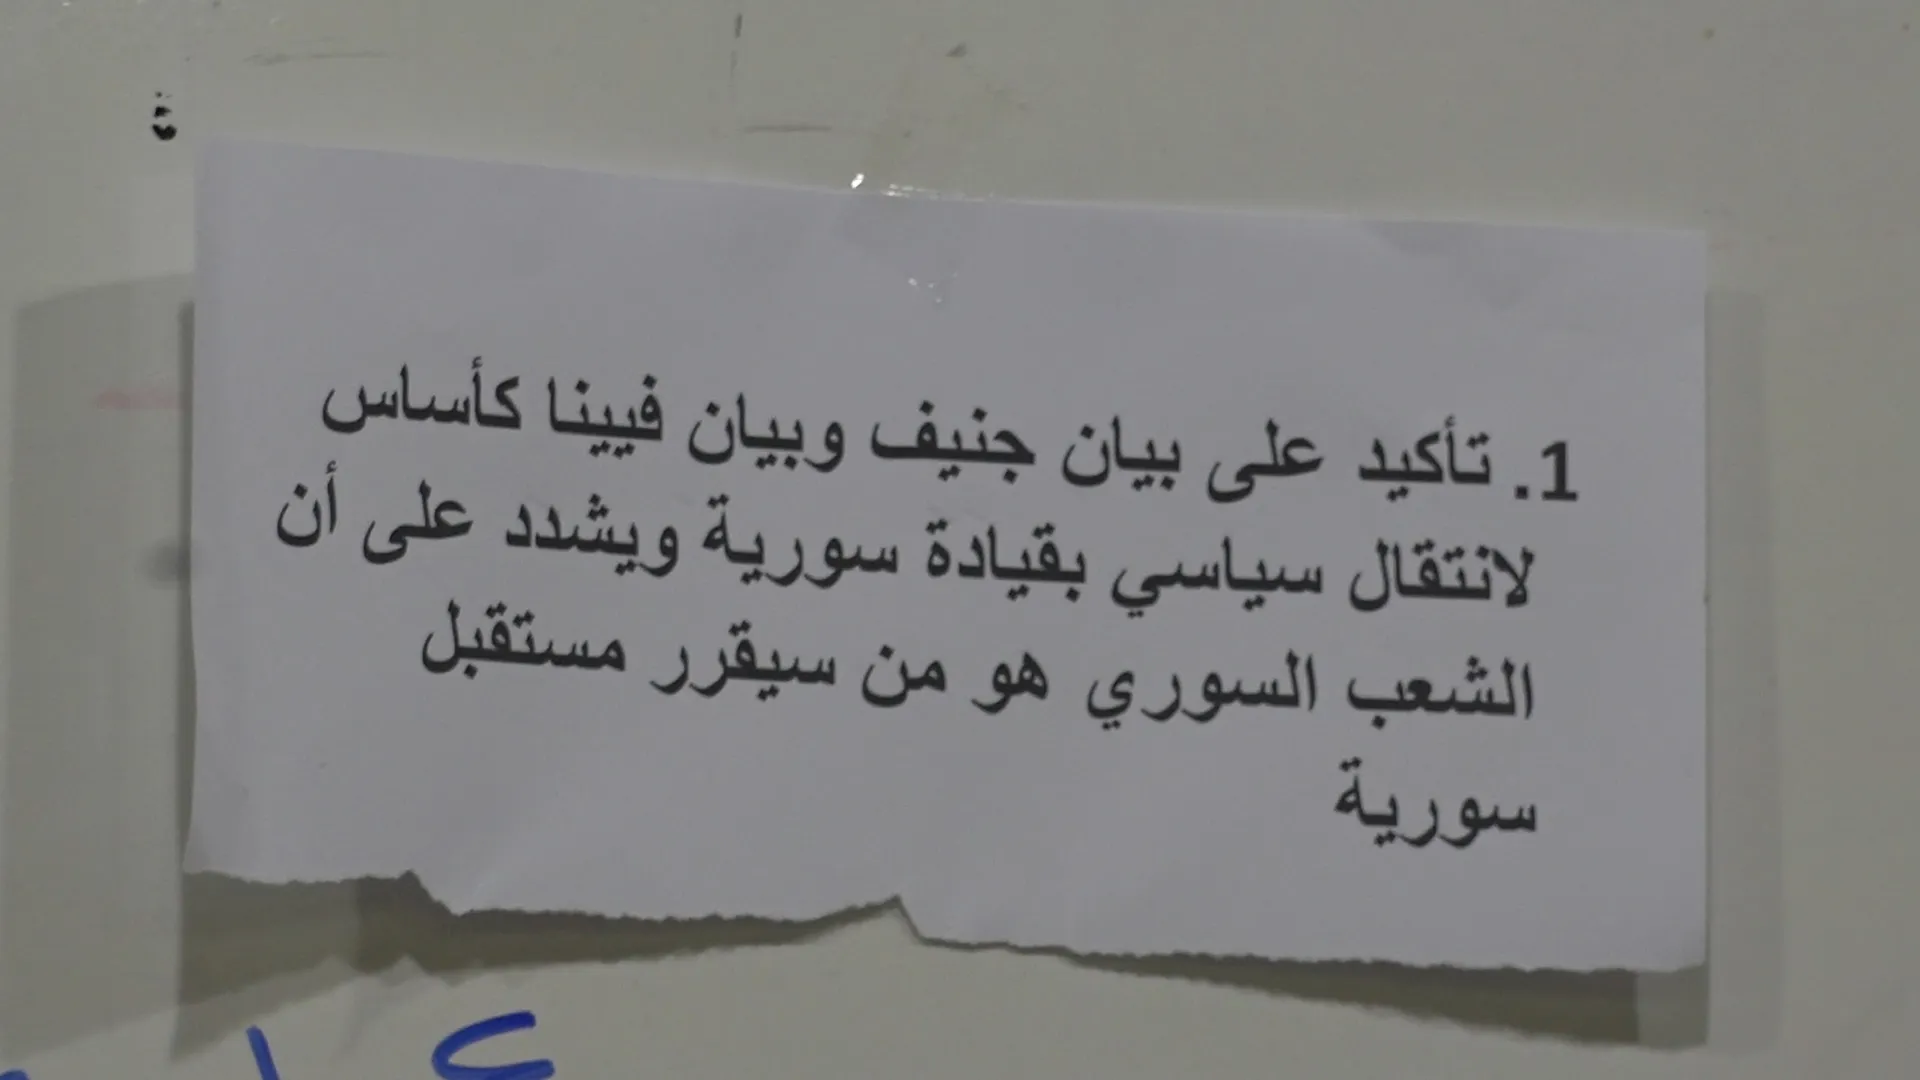 1. تأكيد على بيان جنيف وبيان فيينا كأساس
لانتقال سياسي بقيادة سورية ويشدد على أن
الشعب السوري هو من سيقرر مستقبل
سورية